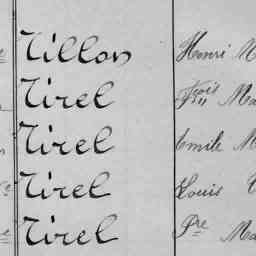 Tillon Henri M
Tirel Fois Ma
Tirel Emile M
Tirel Louis
Tirel Pre Ma